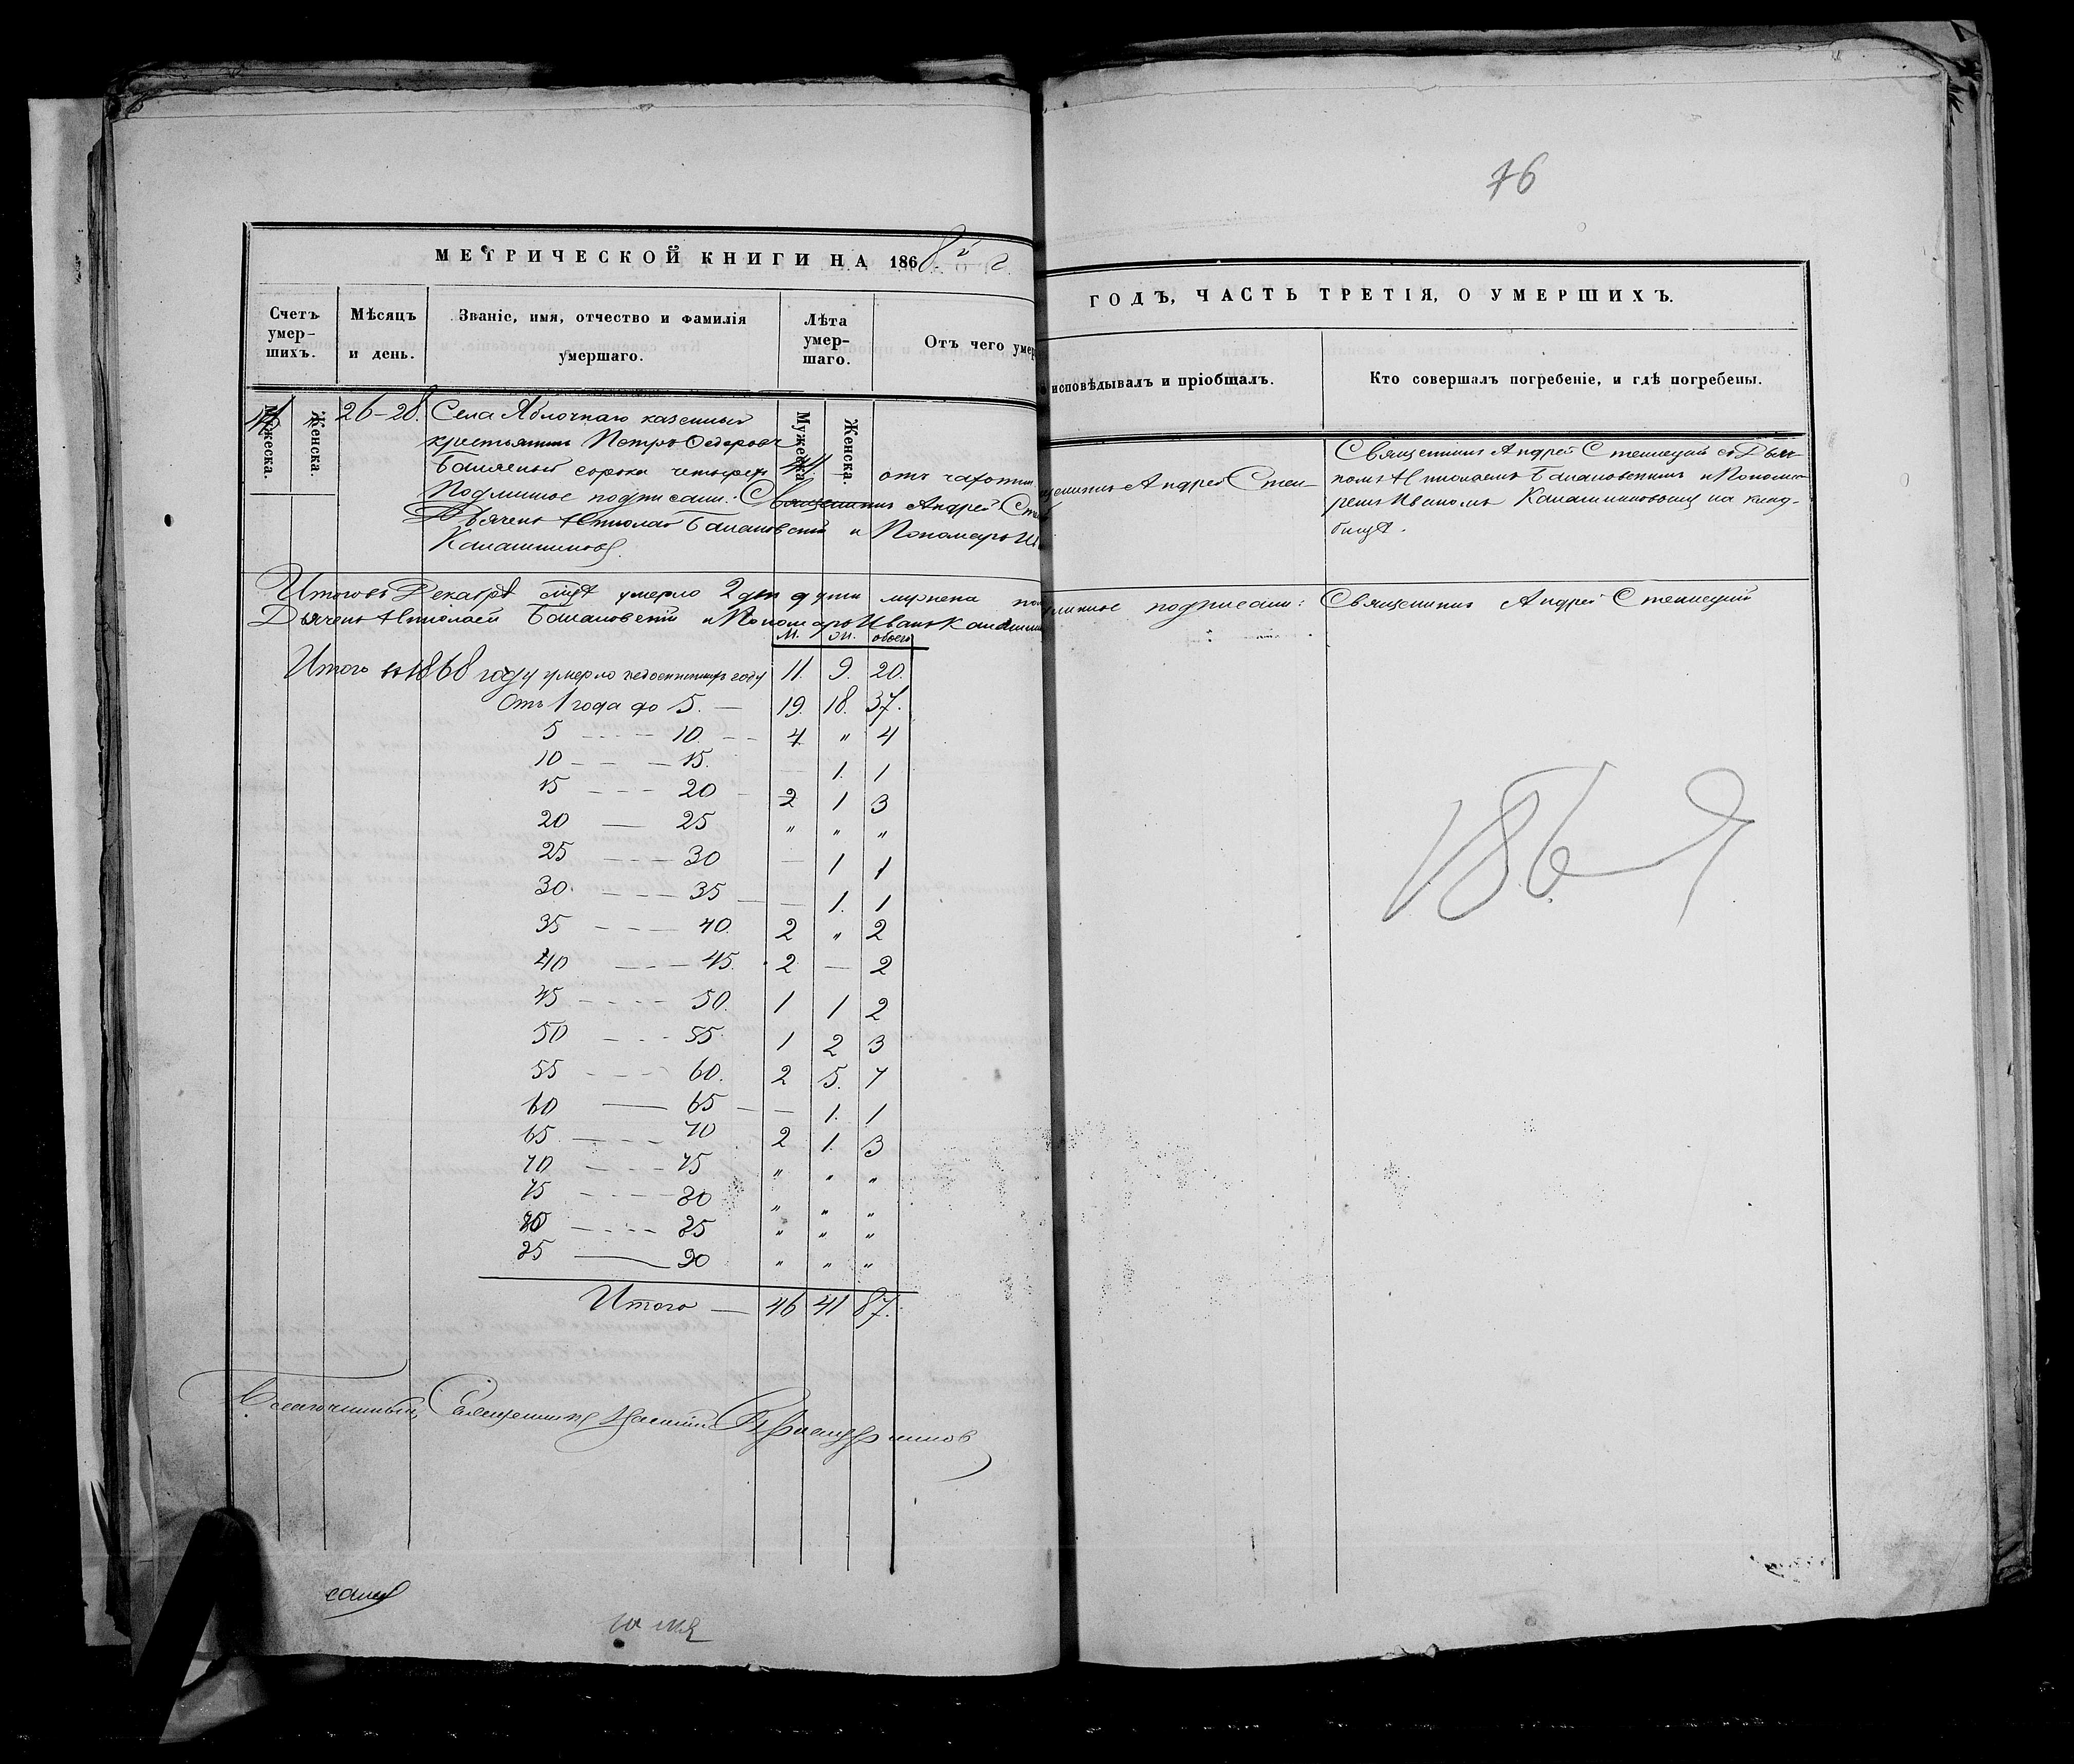 76
МЕТРИЧЕСКОЙ КНИГИ НА 1868й г.
ГОДЪ, ЧАСТЬ ТРЕТІЯ, О УМЕРШИХЪ.
Счетъ умер-шихъ.
Мѣсяцъ и день.
Званіе, имя, отчество и фамилія умершаго.
Лѣта умер-шаго.
Отъ чего умер
исповѣдывалъ и пріобщалъ.
Кто совершалъ погребеніе, и гдѣ погребены.
Мужеска.
Женска.
Мужеска
Женска.
26-28.
Села Яблочнаго казенный
крестьянинъ Петръ
сорока четырехъ
отъ чахотки
Подлинное подписали: Священникъ Андрей
Дьячекъ Николай Балановскій и Пономарь
Калашниковъ.
Андрей Степ-
Священникъ Андрей Степецкій съ Дьяч-
комъ Николаемъ Балановскимъ и Понома-
ремъ Иваномъ Калашниковымъ на клад-
бищѣ.
Итого въ Декабрѣ мцѣ умерло 2 два души мужска
подписали: Священникъ Андрей Степецкій
Дьячекъ Николай Балановскій и Пономарь Иванъ
М. Ж. обоего
Итого въ 1868 году умерло году 11. 9. 20.
Отъ 1 года до 5. — 19. 18. 37.
5 - - - - 10. - - 4 " 4
10 - - - 15. — 1. 1
15 - - - 20 - 2 1 3
20 — 25 " " "
25 - - - 30 — 1 1
30. - - - 35 — 1. 1
35 - - - 40. 2 " 2
40 - - - 45. 2 — 2
45 - - - - 50. 1 1 2
50 - - - 55. 1 2 3
55 - - - 60. 2 5. 7
60 — 65 - — 1. 1
65. - - - 70 2 1. 3
70 - - - 75 " " "
75 - - - 80 " " "
80 - - - 85 " " "
85 — 90 " " "
Итого — 46 41 87.
Благочинный, Священникъ
186